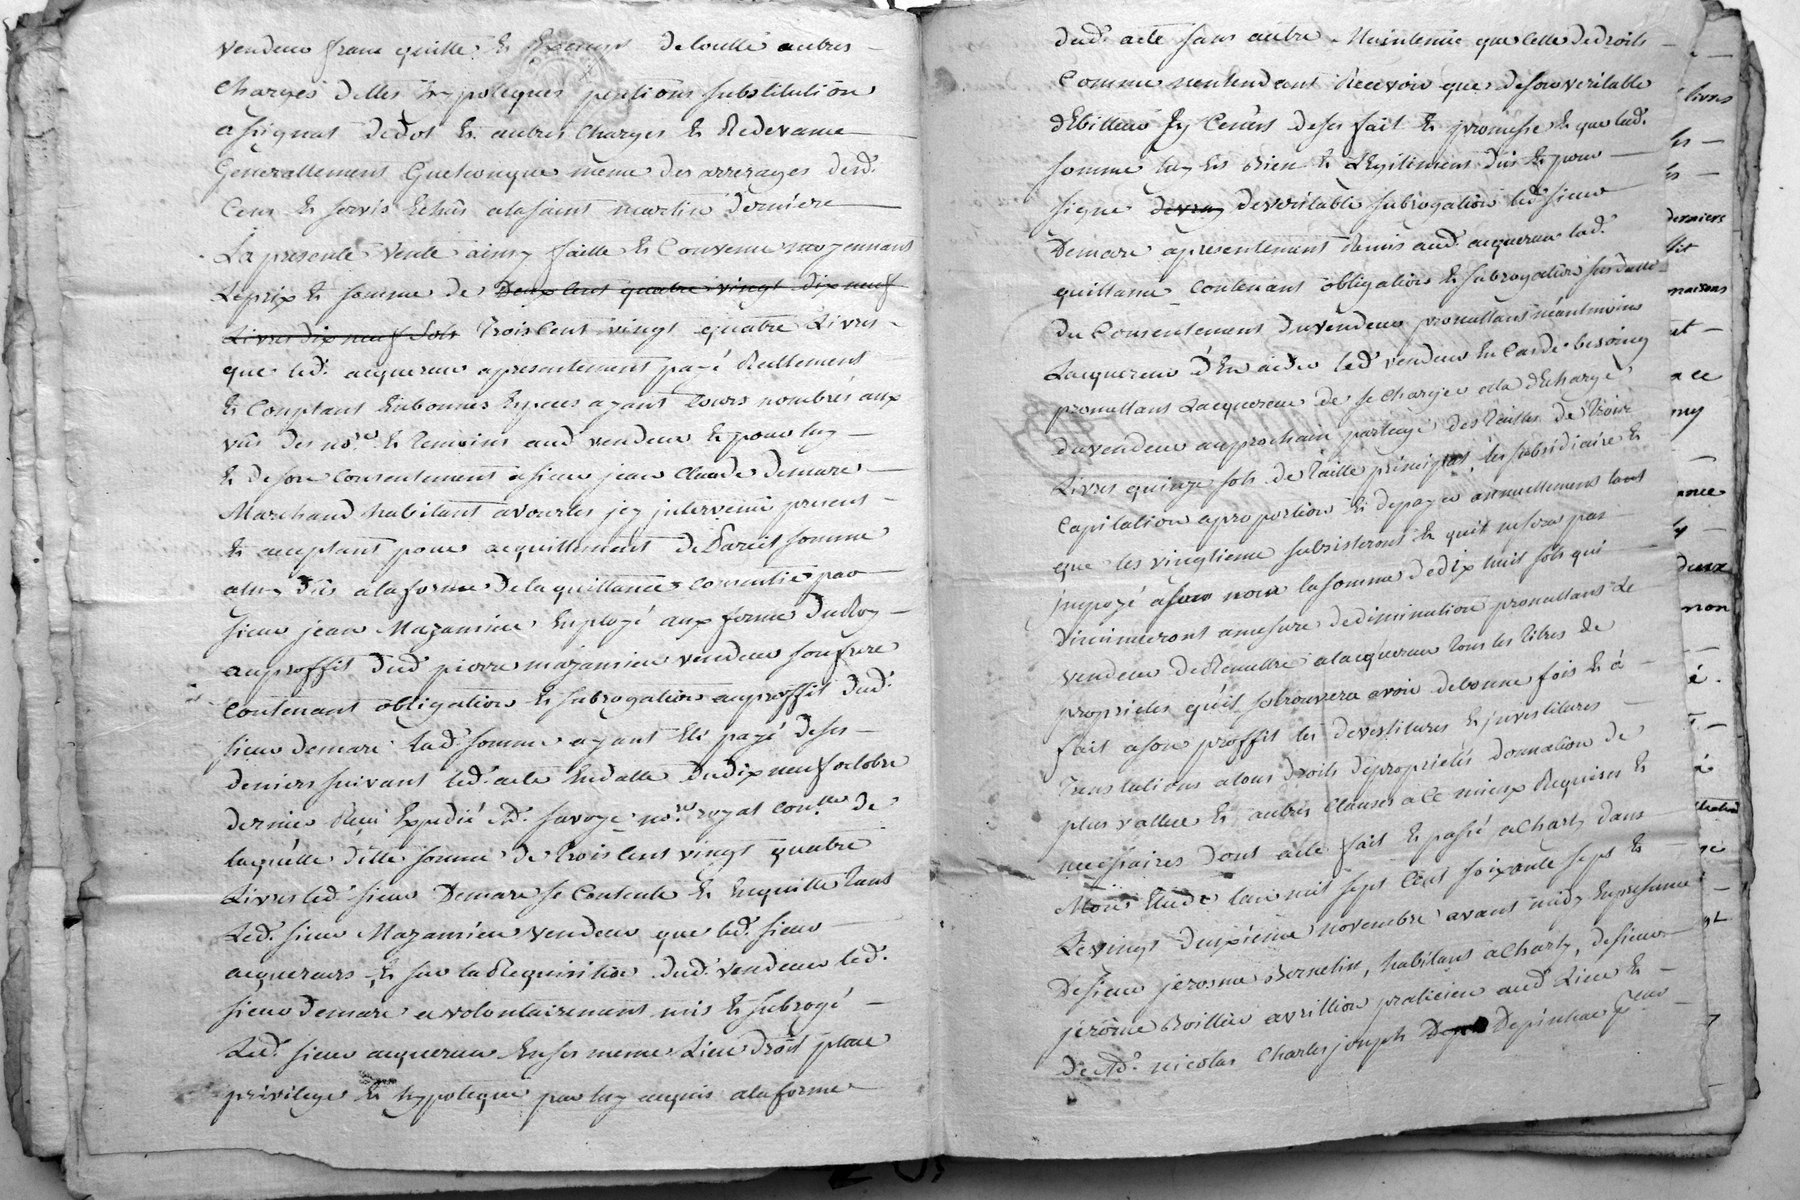 vendeur franc quitte et exempt de toutte autres
charges dettes hypoteques pentions substitution
assignat de dot et autres charges et Redevance
Generallement Quelconque même des arrerages desd.
Cens et servis Echûs a la saint martin derniere
La presente vente ainsy faitte et Convenue moyennant
Le prix et somme de Deux Cent quatre vingt dix neuf
Livres dix neuf sols Trois Cent vingt quatre Livres
que led. acquereur a presentement payé Reellement
et Comptant En bonnes Especes ayant Cours nombrés aux
vûs des no.re et temoins aud vendeur et pour luy
et de son Consentement a sieur jean Claude Demare
Marchand habitant a vourles jcy intervenû present
et acceptant pour acquittement de Pareil somme
a luy dûe a la forme de la quittance consentie par
sieur jean Mazamieu Employé aux ferme du Roy
au proffit dud pierre mazamieu vendeur son frere
contenant obligation et subrogation au proffit dud.
sieur demare lad. somme ayant été payé de ses
deniers suivant led. acte En datte du dix neuf octobre
dernier Reçu Expedié M.e savoye no.re royal con.tte de
laquelle ditte somme de trois Cent vingt quatre
Livres led. sieur Demare se Contente et En quitte tant
Led. sieur Mazamieu vendeur que led. sieur
acquereurs et sur la Requisition dud. vendeur led.
sieur demare a volontairement mis et subrogé
Led. sieur acquereur En ses meme Lieu droit place
privilege et hypoteque par luy acquis a la forme
dud. acte sans autre Maintenue que celle de droits
Comme n'entendant Recevoir que de son veritable
dEbitteur Ey Cents de ses fait et promesse et que lad.
somme luy est Bien et Légitiment dûe et pour
signe de vray de veritable subrogation led. sieur
Demare a presentement Remis aud. acquereur lad.
quittance contenant obligation et subrogation susdatte
du Consentement du vendeur promettant néantmoins
Lacquereur d'En aider led. vendeur En Cas de besoing
promettant Lacquereur de se charger a la dEcharge
du vendeur au prochain partage des Tailles de Trois
Livres quinze sols de Taille principal, les subsidiaire et
Capitation a proportion et de payer annuellement tant
que les vingtieme subsisteront et qu'il ne sera pas
impozé a son nom la somme de dix huit sols qui
diminueront a mesure de diminution promettant Le
vendeur de Remettre a lacquereur tous les titres de
proprietés qu'il se trouvera avoir de bonne fois et á
fait a son proffit les devestitures et jnvestitures
Translations a tous droits de proprietés donnation de
plus vallue et autres Clauses a Ce mieux Requises et
necessaires dont acte fait et passé a Charly dans
Mon Etude l'an mil sept Cent soixante sept et
Le vingt deuxieme novembre avant midy En presence
De sieur jerosme Bernetin, habitant a Charly, de sieur
jérôme Boillieu avrillion praticien aud. Lieu et
de M.e nicolas Charles joseph Depinhac